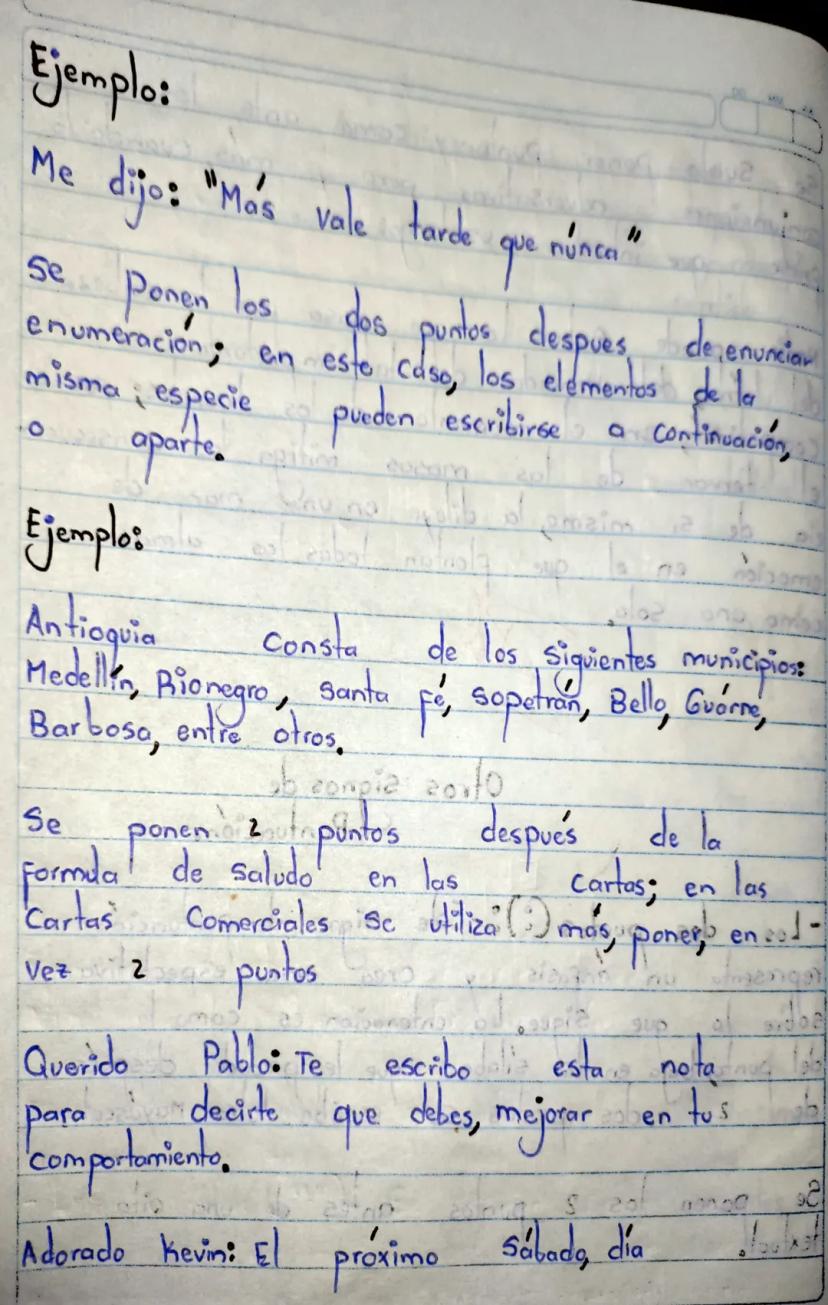 Ejemplo:
Me dijo: "Más vale tarde que núnca"
Se Ponen los dos puntos despues de enunciar
enumeración; en este caso, los elementos de la
misma; especie pueden escribirse a continuación,
o aparte.
Ejemplo:
Antioquia Consta de los siguientes municipios:
Medellín, Rionegro, Santa Fé, Sopetrán, Bello, Guárne,
Barbosa, entre otros.
Se ponen 2 puntos después de la
Formula de Saludo en las cartas; en las
Cartas Comerciales Se utiliza más, poner, en
vez 2 puntos
Querido Pablo: Te escribo esta nota
para decirte que debes, mejorar en tus
comportamiento.
Adorado Kevin: El próximo Sábado, día